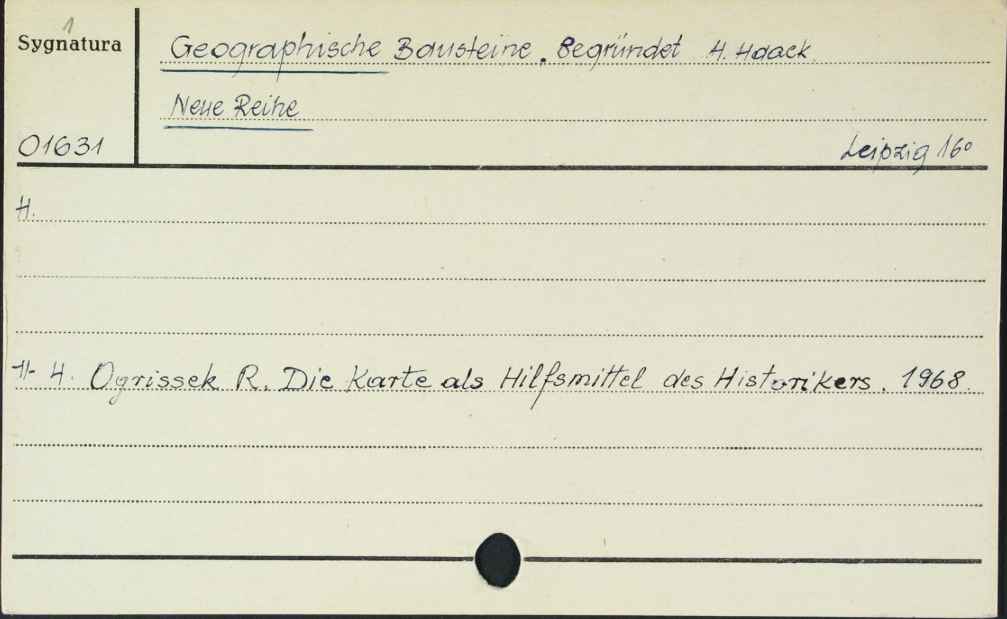 1
Sygnatura
Geographische Bausteine. Begründet H. Haack.
Neue Reihe
01631
Leipzig 16°
H.
H. 4. Ogrissek R. Die Karte als Hilfsmittel des Historikers. 1968.